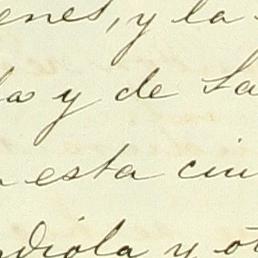 enes, y la
las y de sa
esta ciu
diola y ot